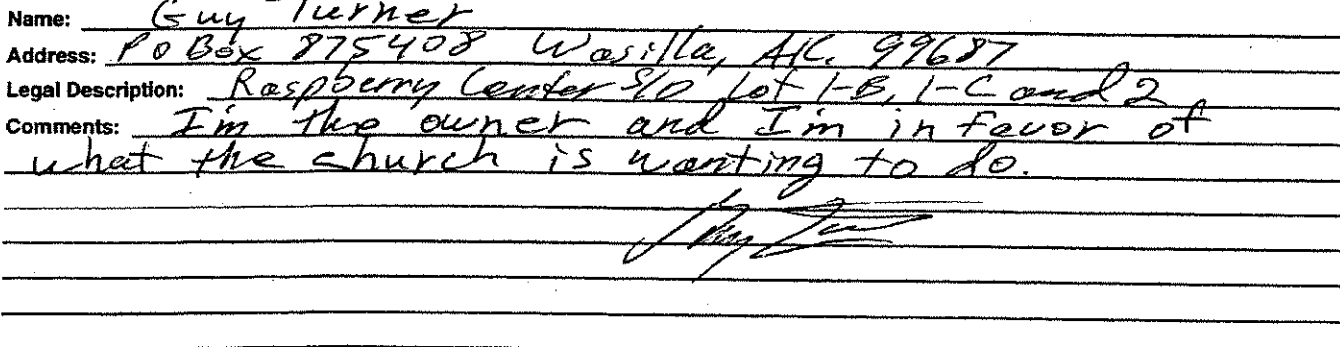 Name: Guy Turner
Address: P O Box 875408 Wasilla, AK. 99687
Legal Description: Raspberry Center S/D Lot 1-B, 1-C and 2
Comments: I'm the owner and I'm in favor of
what the church is wanting to do.